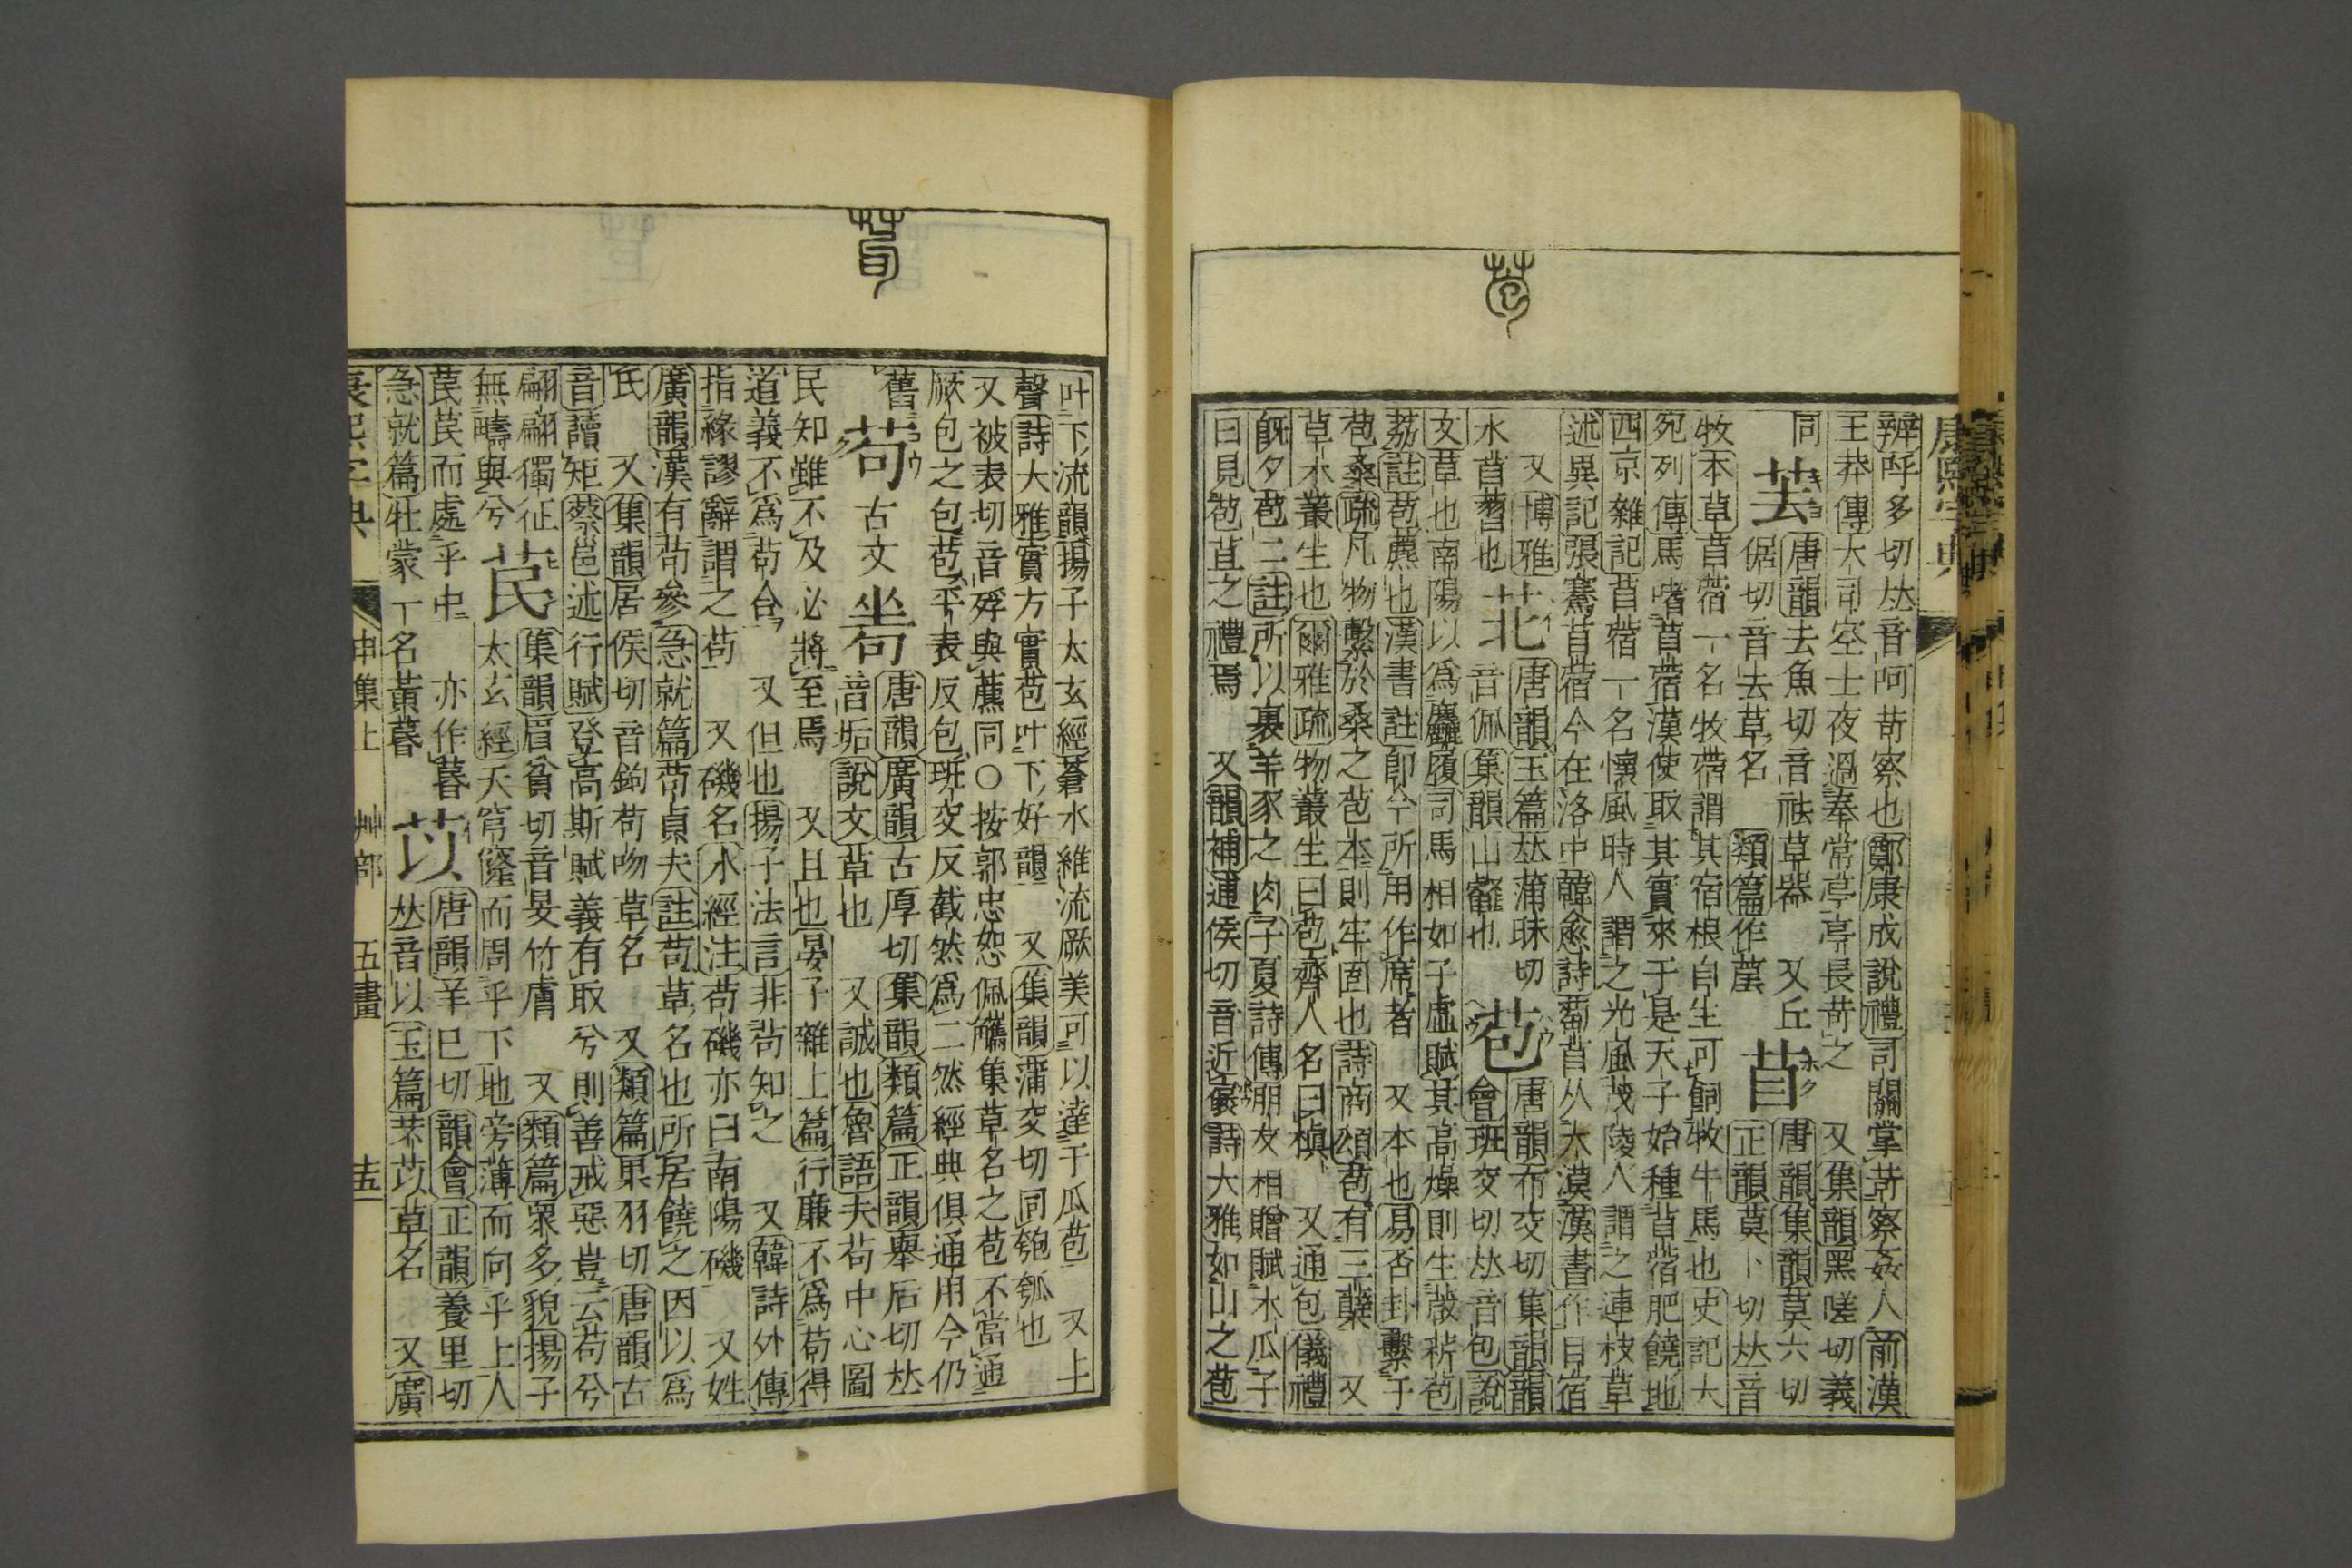 辨呼多切𠀤音呵苛察也鄭康成說禮司關掌苛察姦人前漢
王莽傳大司空士夜過奉常亭亭長苛之 又集韻黑嗟切義
同 苦 唐韻去魚切音祛草器 又丘 苜 唐韻集韻莫六切
倨切音去草名 類篇作𦳝 正韻莫卜切𠀤音
牧本草苜蓿一名牧蓿謂其宿根自生可飼牧牛馬也史記大
宛列傳馬嗜苜蓿漢使取其實來于是天子始種苜蓿肥饒地
西京雜記苜蓿一名懷風時人謂之光風茂陵人謂之連枝草
述異記張騫苜蓿今在洛中韓愈詩萄苜从大漠漢書作目宿
又博雅 苝 唐韻玉篇𠀤蒲昧切 苞 唐韻布交切集韻韻
水苜䒷也 音佩集韻山䪥也 會班交切𠀤音包說
文草也南陽以爲麤履司馬相如子虛賦其高燥則生葴菥苞
荔註苞藨也漢書註卽今所用作席者 又本也易否卦繫于
苞桑疏凡物繫於桑之苞本則牢固也詩商頌苞有三櫱 又
草木叢生也爾雅疏物叢生曰苞齊人名曰稹 又通包儀禮
旣夕苞二註所以裹羊豕之肉子夏詩傳朋友相贈賦木瓜子
曰見苞苴之禮焉 又韻補通侯切音近裒詩大雅如山之苞
叶下流韻揚子太玄經蒼水維流厥美可以達于瓜苞 又上
聲詩大雅實方實苞叶下好韻 又集韻蒲交切同匏瓠也
又被表切音殍與藨同○按郭忠恕佩觿集草名之苞不當通
厥包之包苞平表反包班交反截然爲二然經典俱通用今仍
舊 苟 古文 𡴎 唐韻廣韻古厚切集韻類篇正韻舉后切𠀤
音垢說文草也 又誠也魯語夫苟中心圖
民知雖不及必將至焉 又且也晏子雜上篇行廉不爲苟得
道義不爲苟合 又但也揚子法言非苟知之 又韓詩外傳
指緣謬辭謂之苟 又磯名水經注苟磯亦曰南陽磯 又姓
廣韻漢有苟參急就篇苟貞夫註苟草名也所居饒之因以爲
氏 又集韻居侯切音鉤苟吻草名 又類篇果羽切唐韻古
音讀矩蔡邕述行賦登高斯賦義有取兮則善戒惡豈云苟兮
翩翩獨征 苠 集韻眉貧切音旻竹膚 又類篇衆多貌揚子
無疇與兮 太玄經天穹窿而周乎下地旁薄而向乎上人
苠苠而處乎中 亦作䁕 苡 唐韻羊巳切韻會正韻養里切
急就篇牡蒙一名黃䁕 𠀤音以玉篇芣苡草名 又廣
康熙字典 申集上 艸部 五畫 十五